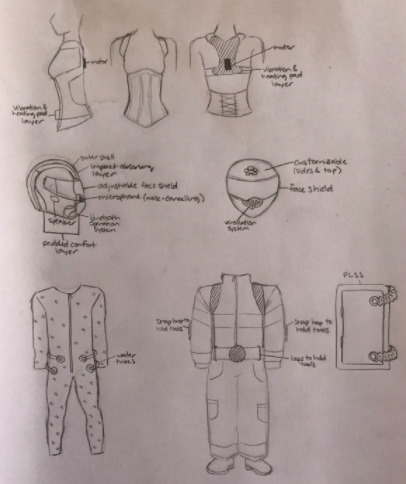 motor
motor
vibration &
heating pad
layer
vibration &
heating pad
layer
outer shell
impact absorbing
layer
adjustable face shield
microphone (noise-cancelling)
speaker
bluetooth
operation
system
padded comfort
layer
customizable
(sides & top)
face shield
ventilation
system
water
tubes
snap loop to
hold tools
snap loop to
hold tools
loops to hold
tools
PLSS